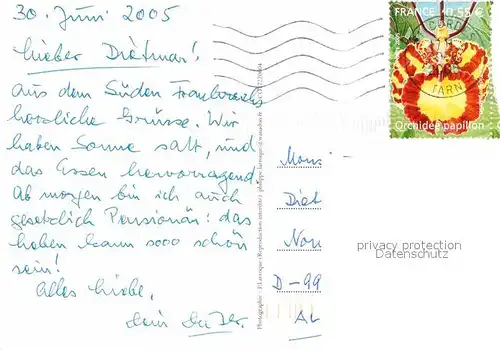 30. Juni 2005
Lieber Dietmar!
aus dem Süden Frankreichs
herzliche Grüsse. Wir
haben Sonne satt, und
das Essen hervorragend
Ab morgen bin ich auch
gesetzlich Pensionär: das
haben kann sooo schön
sein!
Alles Liebe,
Dein
FRANCE 0,55 €
CORDES
TARN
Orchidée papillon
Mons
Diet
Non
D-99
AL
privacy protection
Datenschutz